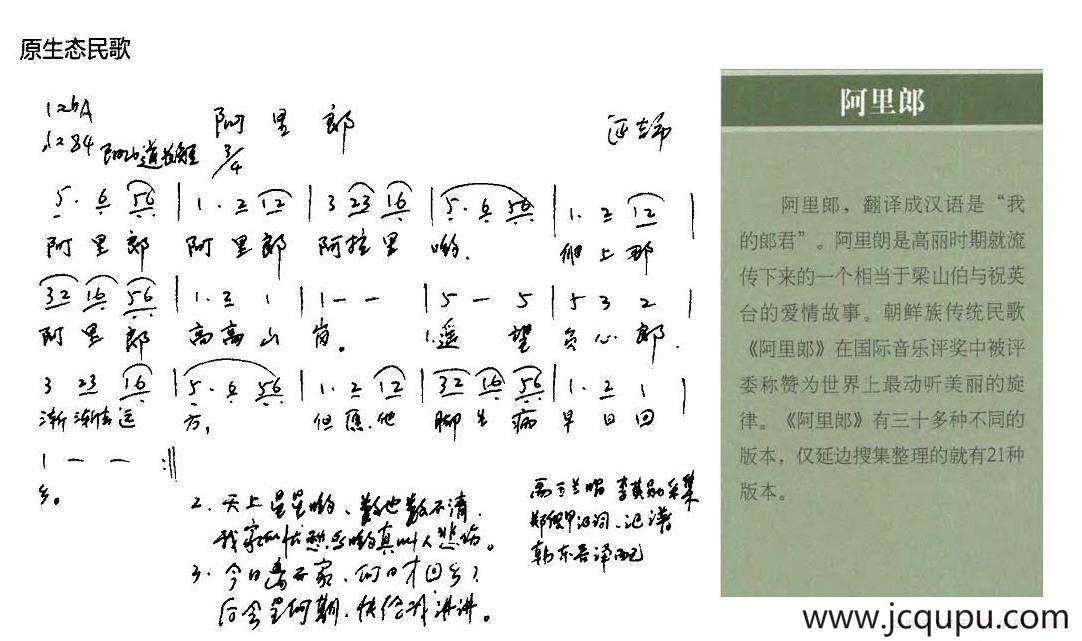 原生态民歌
1=bA
阿里郎
3/4
5. 6 56 | 1. 2 12 | 3 23 16 | 5. 6 56 | 1. 2 12 |
阿里郎 阿里郎 阿拉里 哟. 爬上那
32 16 56 | 1. 2 1 | 1 - - | 5 - 5 | 5 3 2 |
阿里郎 高高山岗。 1.遥望负心郎.
3 23 16 | 5. 6 56 | 1. 2 12 | 32 16 56 | 1. 2 1 |
渐渐去远方, 但愿他脚生病早日回
1 - - :||
乡。
2. 天上星星哟、数也数不清.
我家的忧愁哟真叫人悲伤。
3. 今日离家.何日才回乡?
后会是何期.快给我讲讲。
采集
记谱
韩东吾译配
阿里郎
阿里郎，翻译成汉语是“我
的郎君”。阿里朗是高丽时期就流
传下来的一个相当于梁山伯与祝英
台的爱情故事。朝鲜族传统民歌
《阿里郎》在国际音乐评奖中被评
委称赞为世界上最动听美丽的旋
律。《阿里郎》有三十多种不同的
版本，仅延边搜集整理的就有21种
版本。
www.jcqupu.com